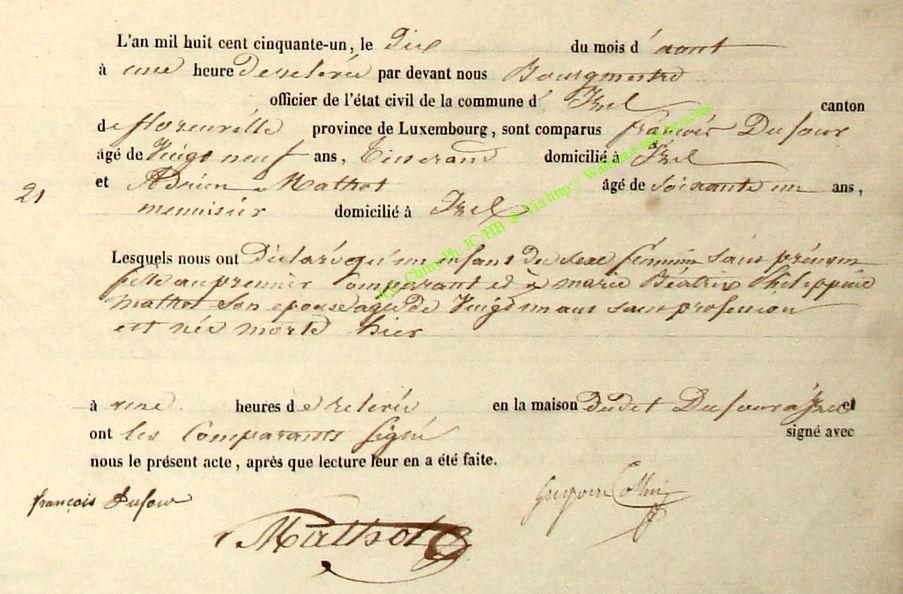 L'an mil huit cent cinquante-un, le dix du mois d'aout
à une heure de relevée par devant nous Bourgmestre
officier de l'état civil de la commune d' Izel canton
de florenville province de Luxembourg, sont comparus françois Dufour
âgé de Vingt neuf ans, Tisserand domicilié à Izel
21 et Adrien Mathot âgé de soixante un ans,
menuisier domicilié à Izel
Lesquels nous ont déclaré qu'un enfant du sexe féminin sans prénom
fille au premier Comparant et à marie Béatrix Philippine
Mathot son epouse agée de Vingt un ans sans profession
est née morte hier
à une heures de relevée en la maison dudit Dufour à Izel et
ont les Comparants signé signé avec
nous le présent acte, après que lecture leur en a été faite.
françois Dufour
Mathot